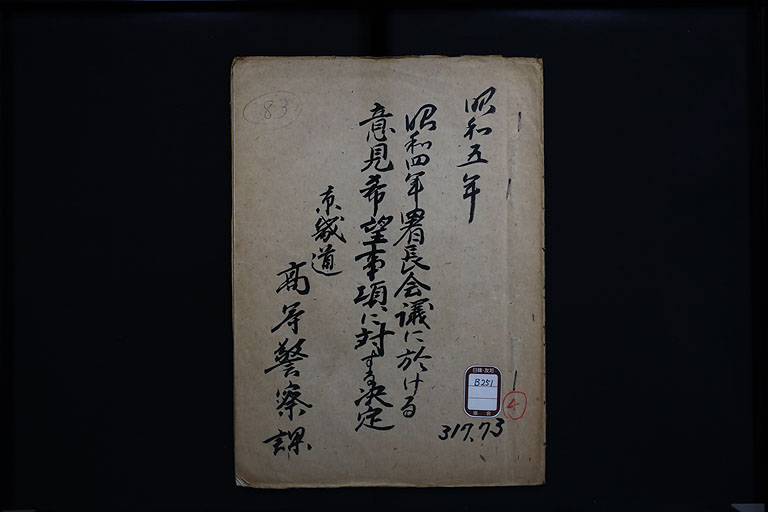 昭和五年
昭和四年署長会議に於ける
意見希望事項に対する決定
京畿道
高等警察課
83
B251
4
317.73